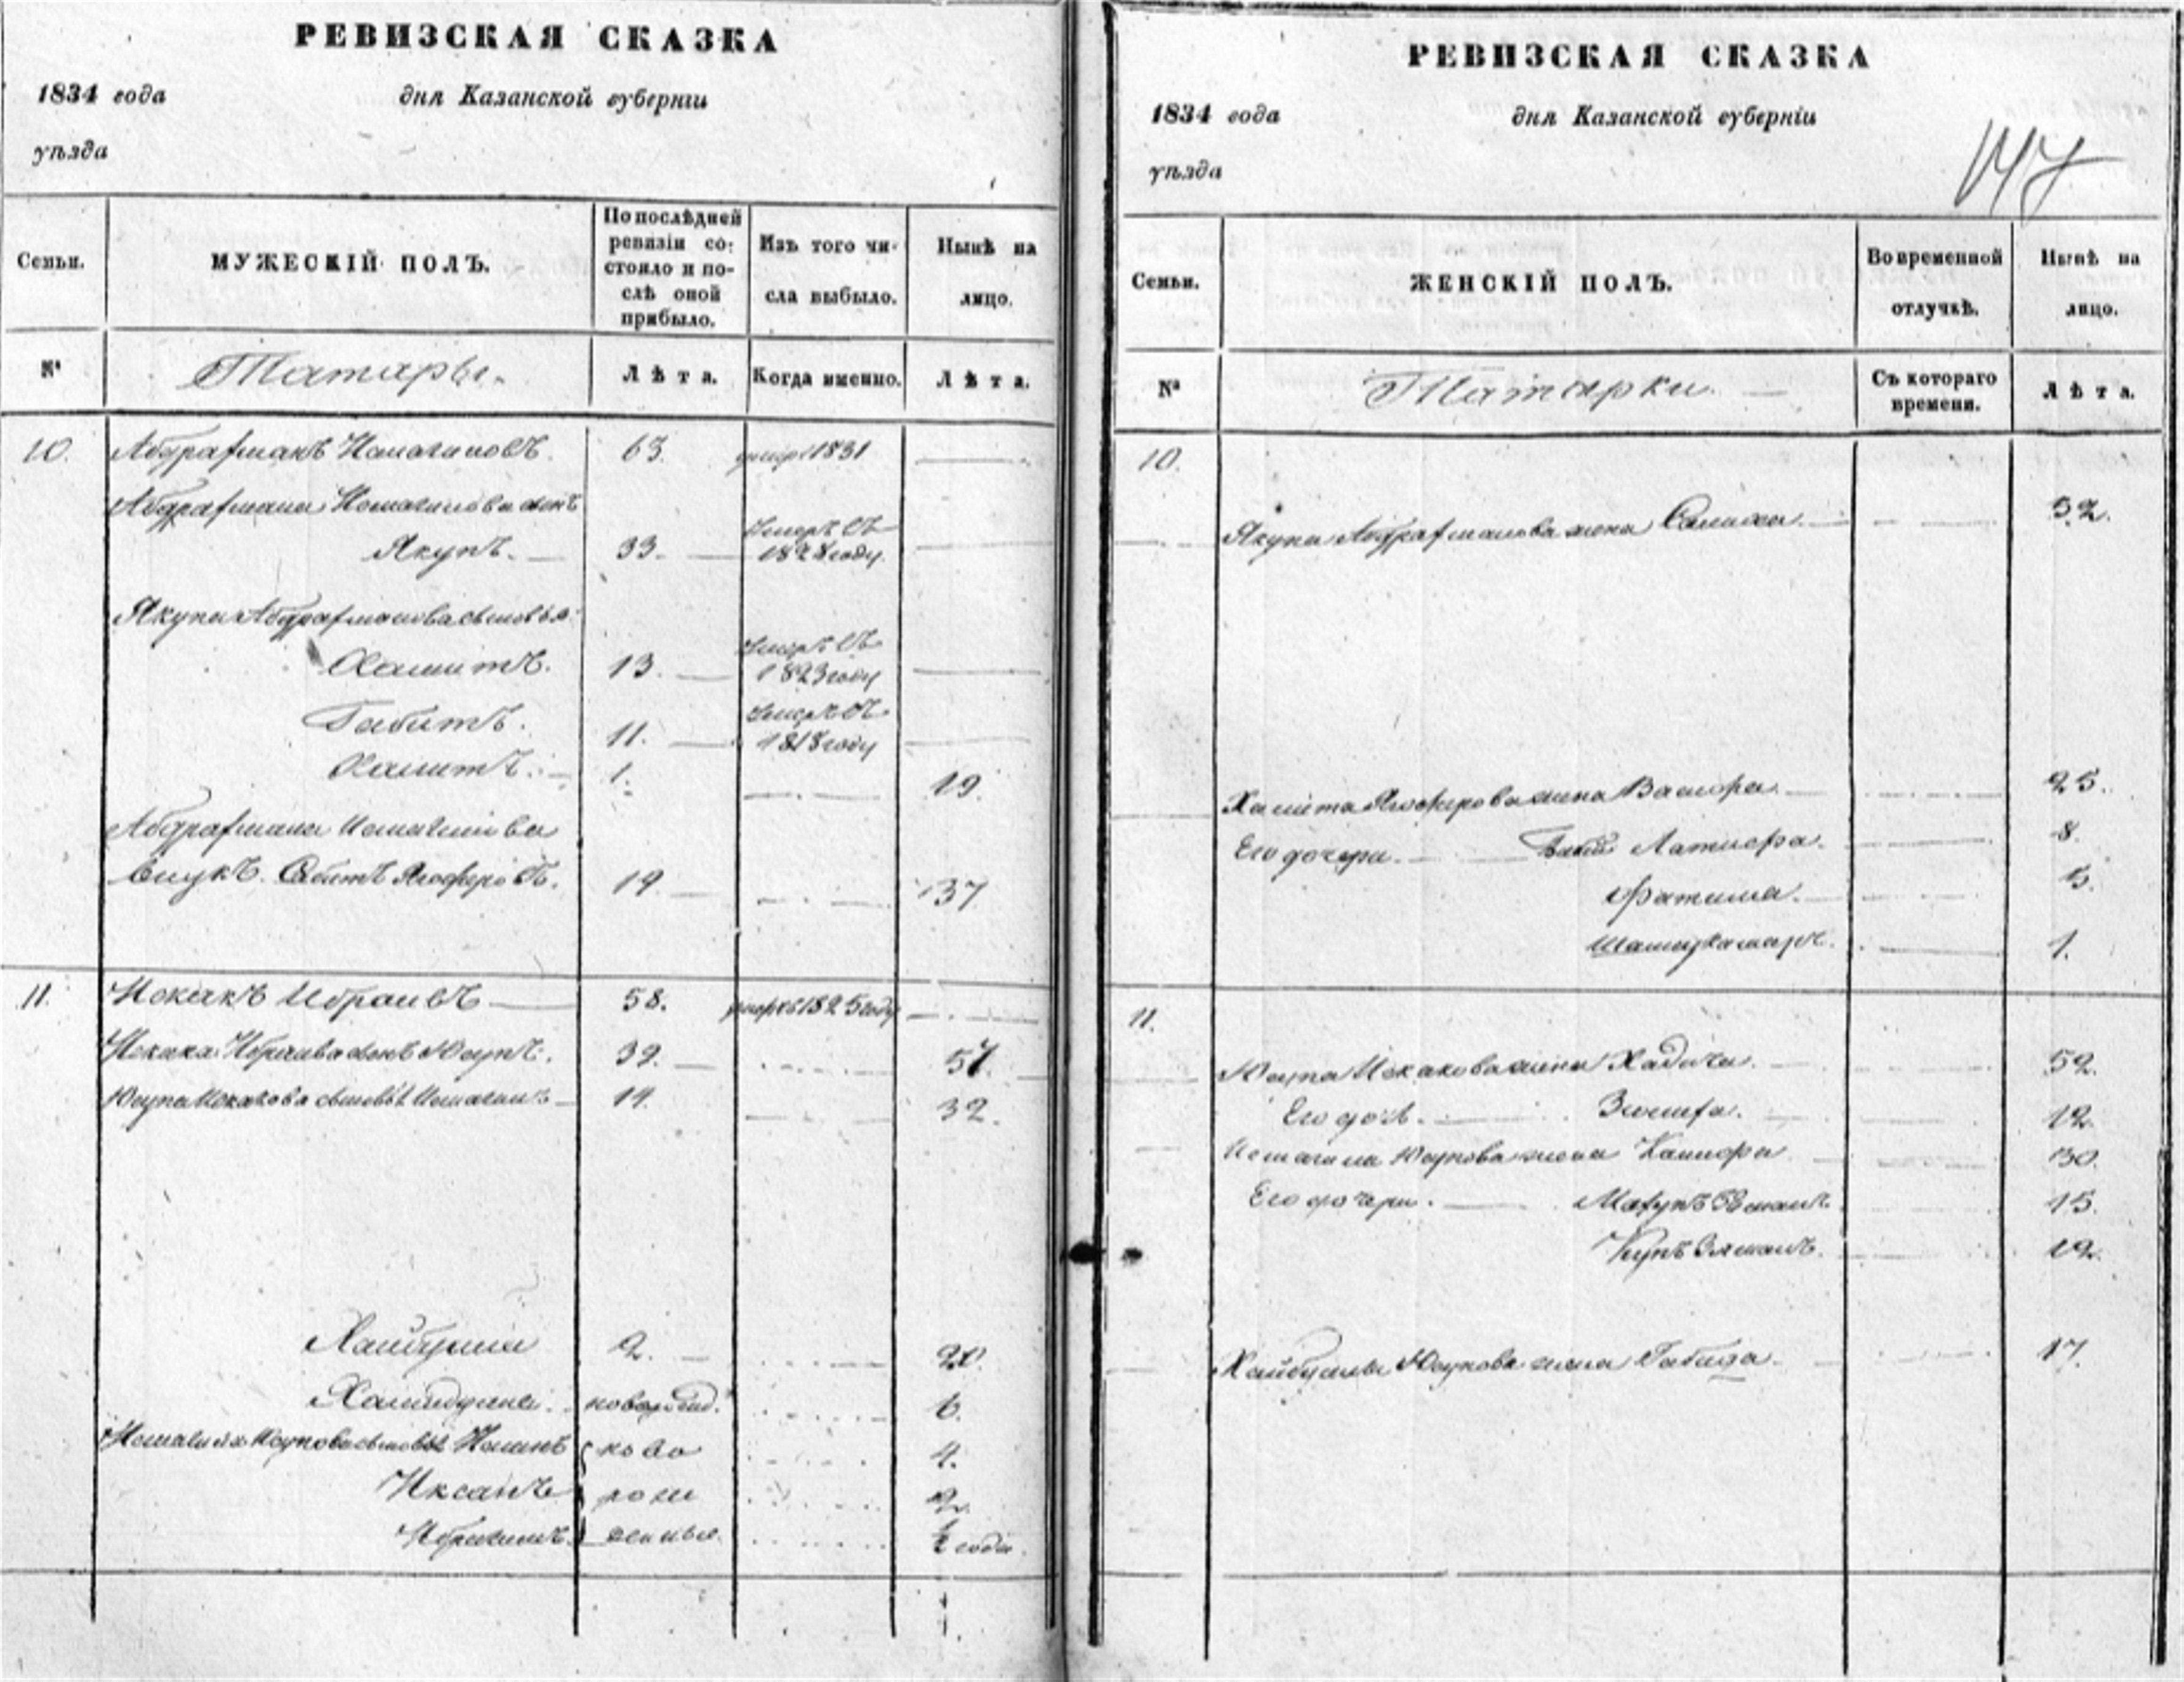 РЕВИЗСКАЯ СКАЗКА
1834 года дня Казанской губерніи
уѣзда
Семьи.
МУЖЕСКІЙ ПОЛЪ.
По послѣдней ревизіи состояло и послѣ оной прибыло.
Изъ того числа выбыло.
Нынѣ на лицо.
№
Татары.
Лѣта.
Когда именно.
Лѣта.
10. Абдрахманъ Исмагиловъ. 63. умеръ 1831
Абдрахмана Исмагилова сынъ
Якупъ. 33. Умеръ въ 1828 году
Якупа Абдрахманова сыновья:
13. Умеръ въ 1823 году
Габитъ. 11. Умеръ въ 1818 году
Хамитъ. 1. 19.
Абдрахмана Исмагилова
внукъ. Сабитъ 19. 37
11. Искакъ Ибраевъ 58. умеръ въ 1825 году
Искака Ибраева сынъ Юсупъ. 39. 57.
Юсупа Искакова сыновья Исмагилъ 14. 32.
Хайбулла 2. 20.
новорожд. 6.
Исмагила Юсупова сыновья ново 4.
Иксанъ рож 2.
Ибрагимъ денные ½ года.
РЕВИЗСКАЯ СКАЗКА
1834 года дня Казанской губерніи
уѣзда
147
Семьи.
ЖЕНСКІЙ ПОЛЪ.
Во временной отлучкѣ.
Нынѣ на лицо.
№
Татарки.
Съ котораго времени.
Лѣта.
10.
Якупа Абдрахманова жена 52.
Хамита жена 25.
Его дочери. Латифа. 8.
Фатима. 5.
1.
11.
Юсупа Искакова жена Хадича. 52.
Его дочь. 12.
Исмагила Юсупова жена 30.
Его дочери. 15.
12.
Хайбуллы Юсупова жена Габида. 17.